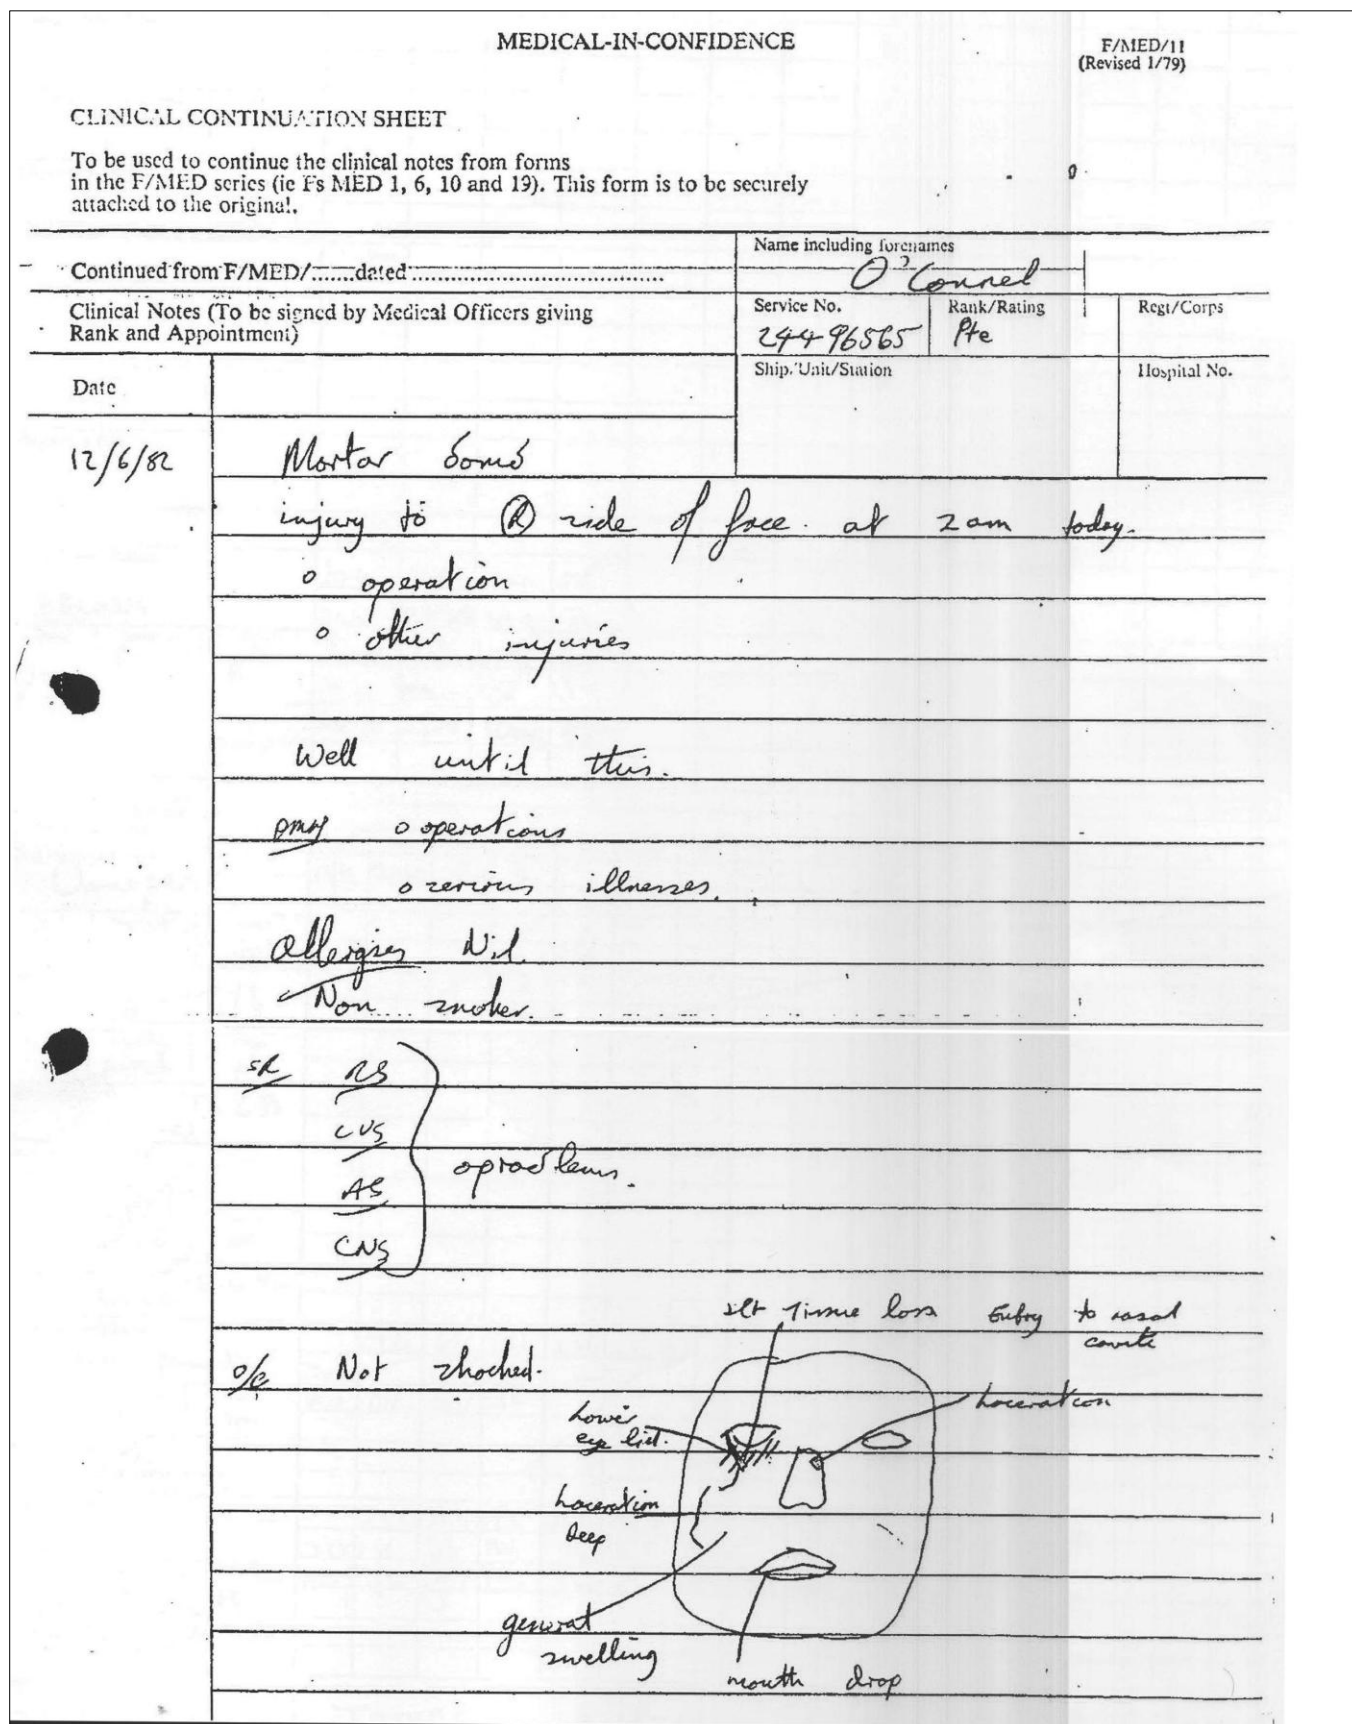 MEDICAL-IN-CONFIDENCE
F/MED/11
(Revised 1/79)
CLINICAL CONTINUATION SHEET
To be used to continue the clinical notes from forms
in the F/MED series (ie Fs MED 1, 6, 10 and 19). This form is to be securely
attached to the original.
Name including forenames
Continued from F/MED/.......dated
O'Connel
Clinical Notes (To be signed by Medical Officers giving
Rank and Appointment)
Service No.
Rank/Rating
Regt/Corps
24496565
Pte
Ship/Unit/Station
Hospital No.
Date
12/6/82
Mortar bomb
injury to (R) side of face. at 2am today.
o operation
o other injuries
Well until this.
PMH o operations
o serious illnesses.
Allergies Nil.
Non smoker.
SR RS
CVS
o problems.
AS
CNS
tissue loss Entry to nasal
cavity
o/e Not shocked.
Laceration
Lower
eye lid.
Laceration
deep
general
swelling
mouth drop